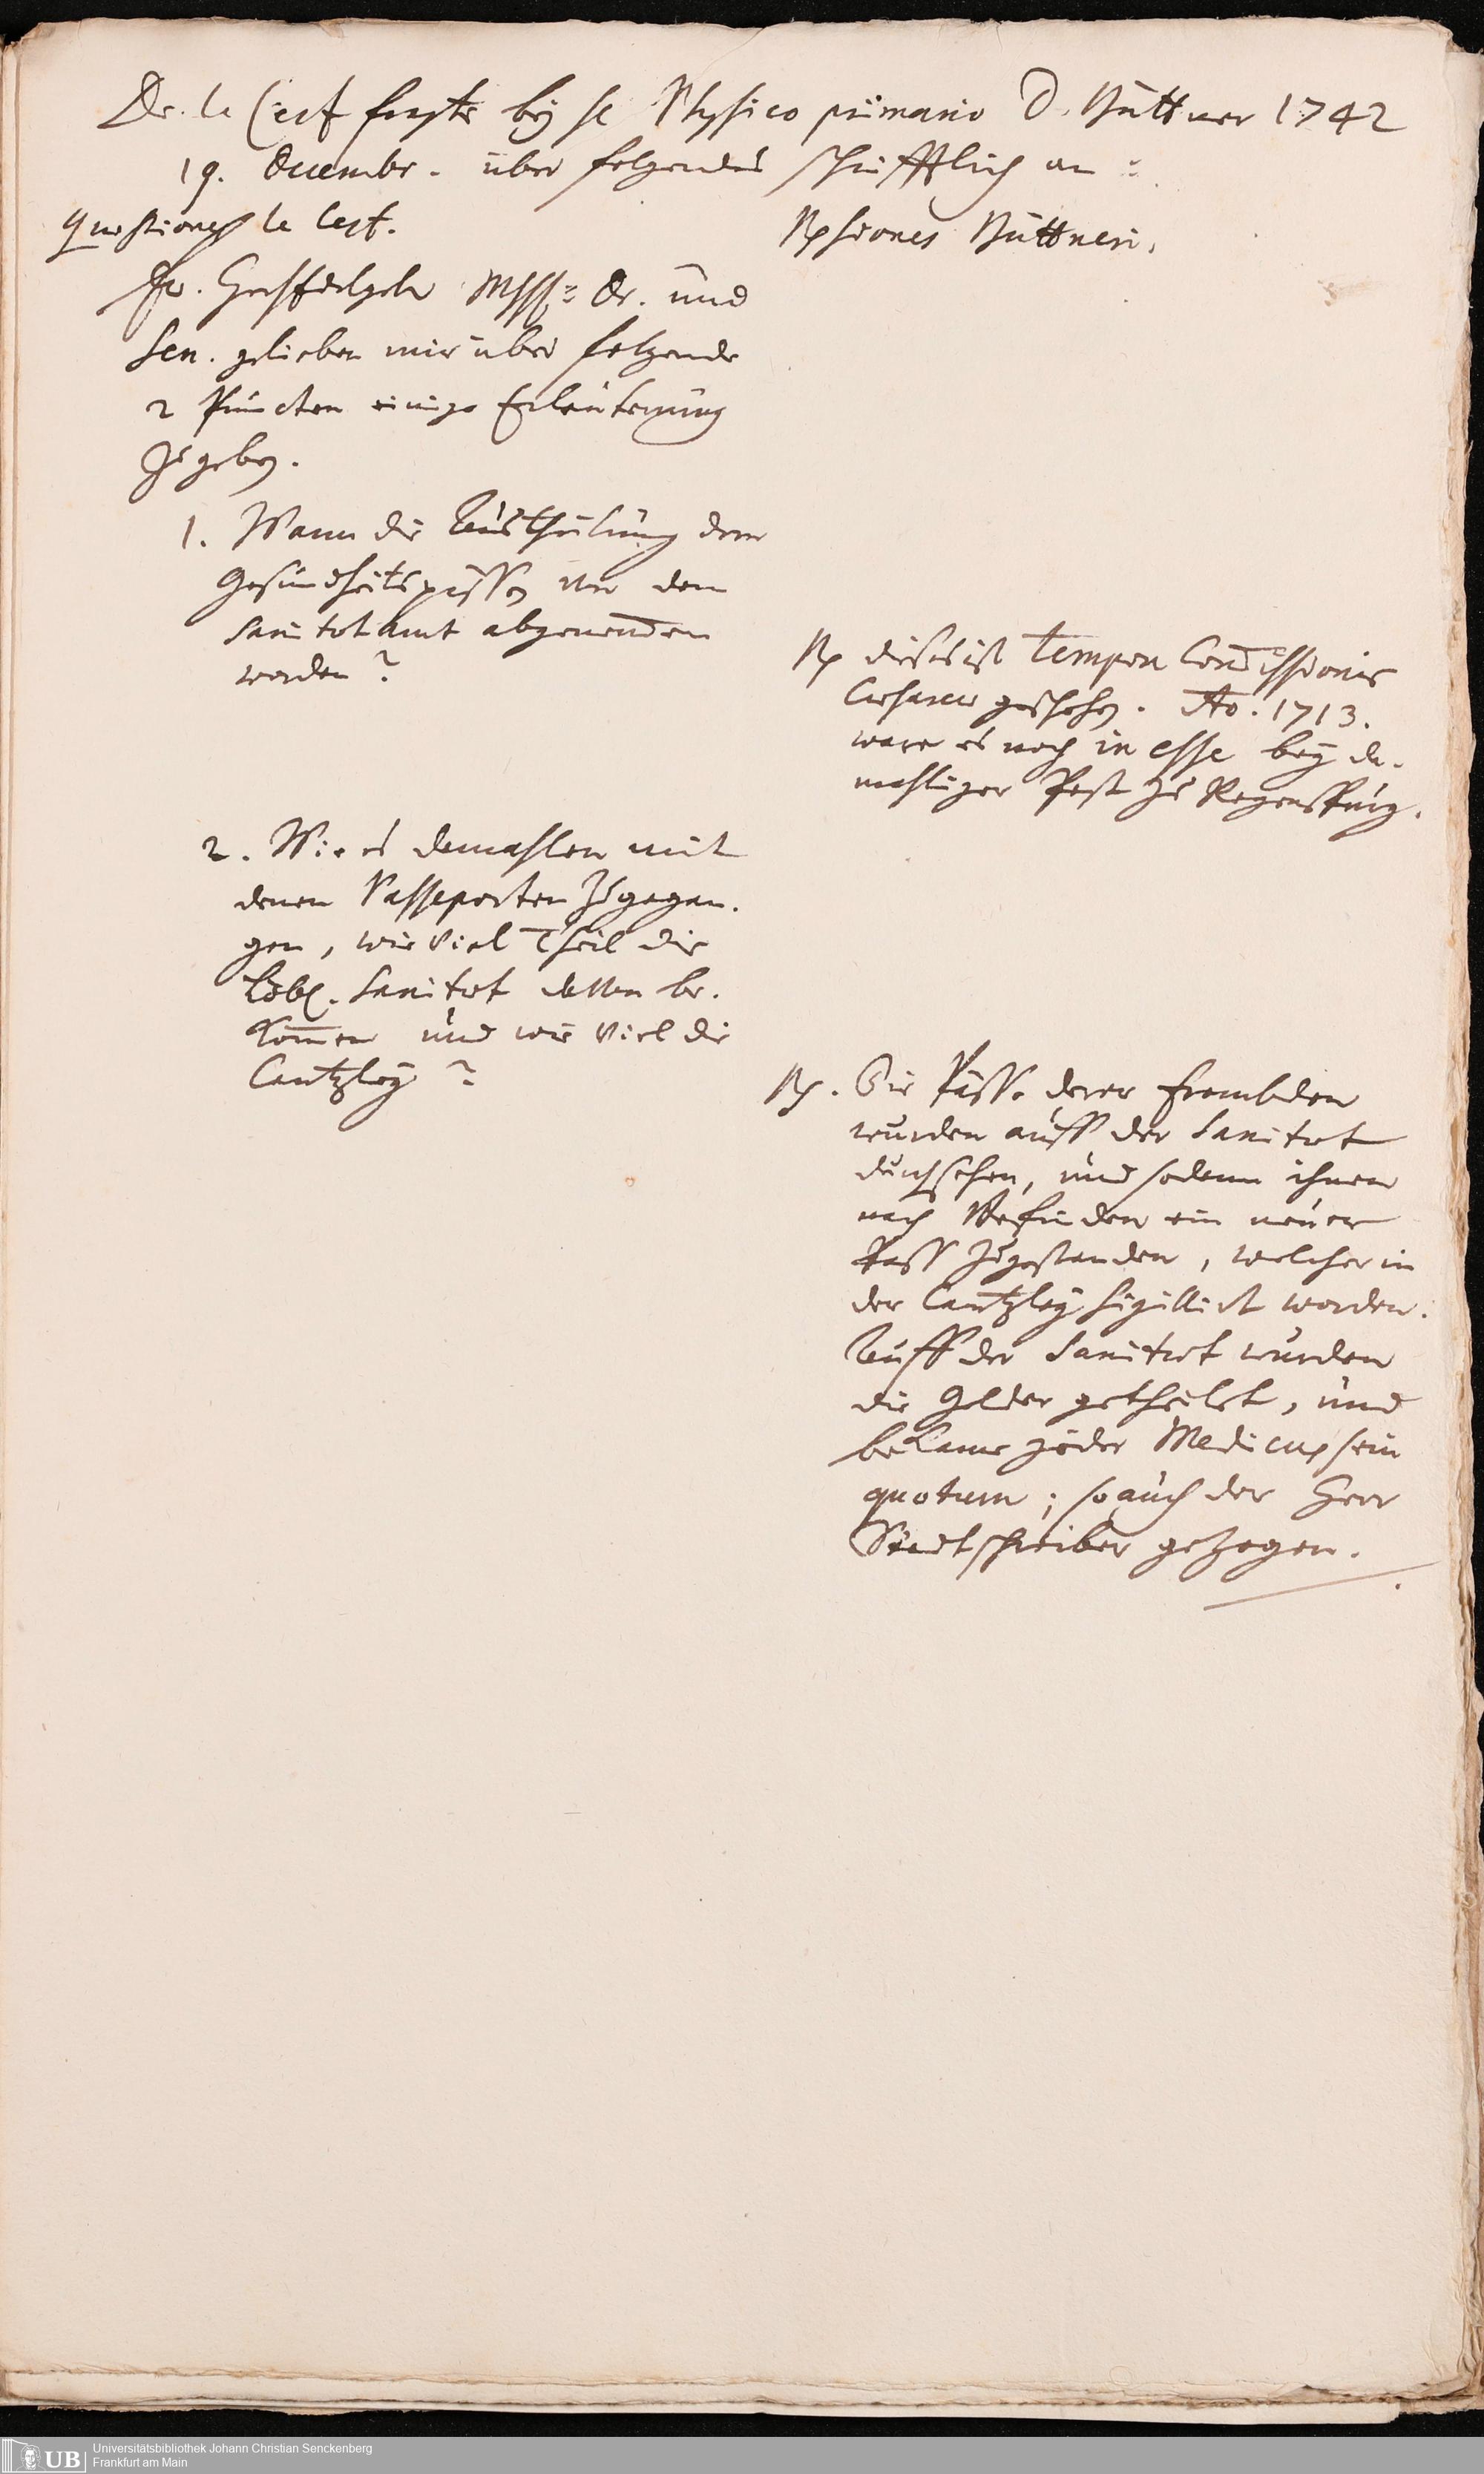 Dr. le Cerf fragte bey Physico primario D. Büttner 1742
19. Decembr. über folgendes schrifftlich an:
Questiones le Cerf.
Ew. HochEdelgeb. Dr. und
Sen. gelieben mir über folgende
2 Puncten einige Erläuterung
zu geben.
1. Wann die Austheilung derer
Gesundheitspässen von dem
Sanitätamt abgenommen
worden?
2. Wie es demahlen mit
denen Passeporten zugegan-
gen, wie viel Theil die
Löbl. Sanitæt davon be-
kommen und wie viel die
Cantzley?
Rsiones Büttneri.
R dieses ist tempore Commissionis
Cæsareæ geschehen. Ao. 1713.
ware es noch in esse bey da-
mahliger Pest zu Regenspurg.
R. Die Pässe derer frembden
wurden auff der Sanitæt
durchsehen, und sodann ihnen
nach Befinden ein neuer
Pass zugestanden, welcher in
der Cantzley sigillirt worden.
Auff der Sanitæt wurden
die Gelder getheilet, und
bekame jeder Medicus sein
quotum; so auch der Herr
Stadtschreiber gezogen.
UB
Universitätsbibliothek Johann Christian Senckenberg
Frankfurt am Main